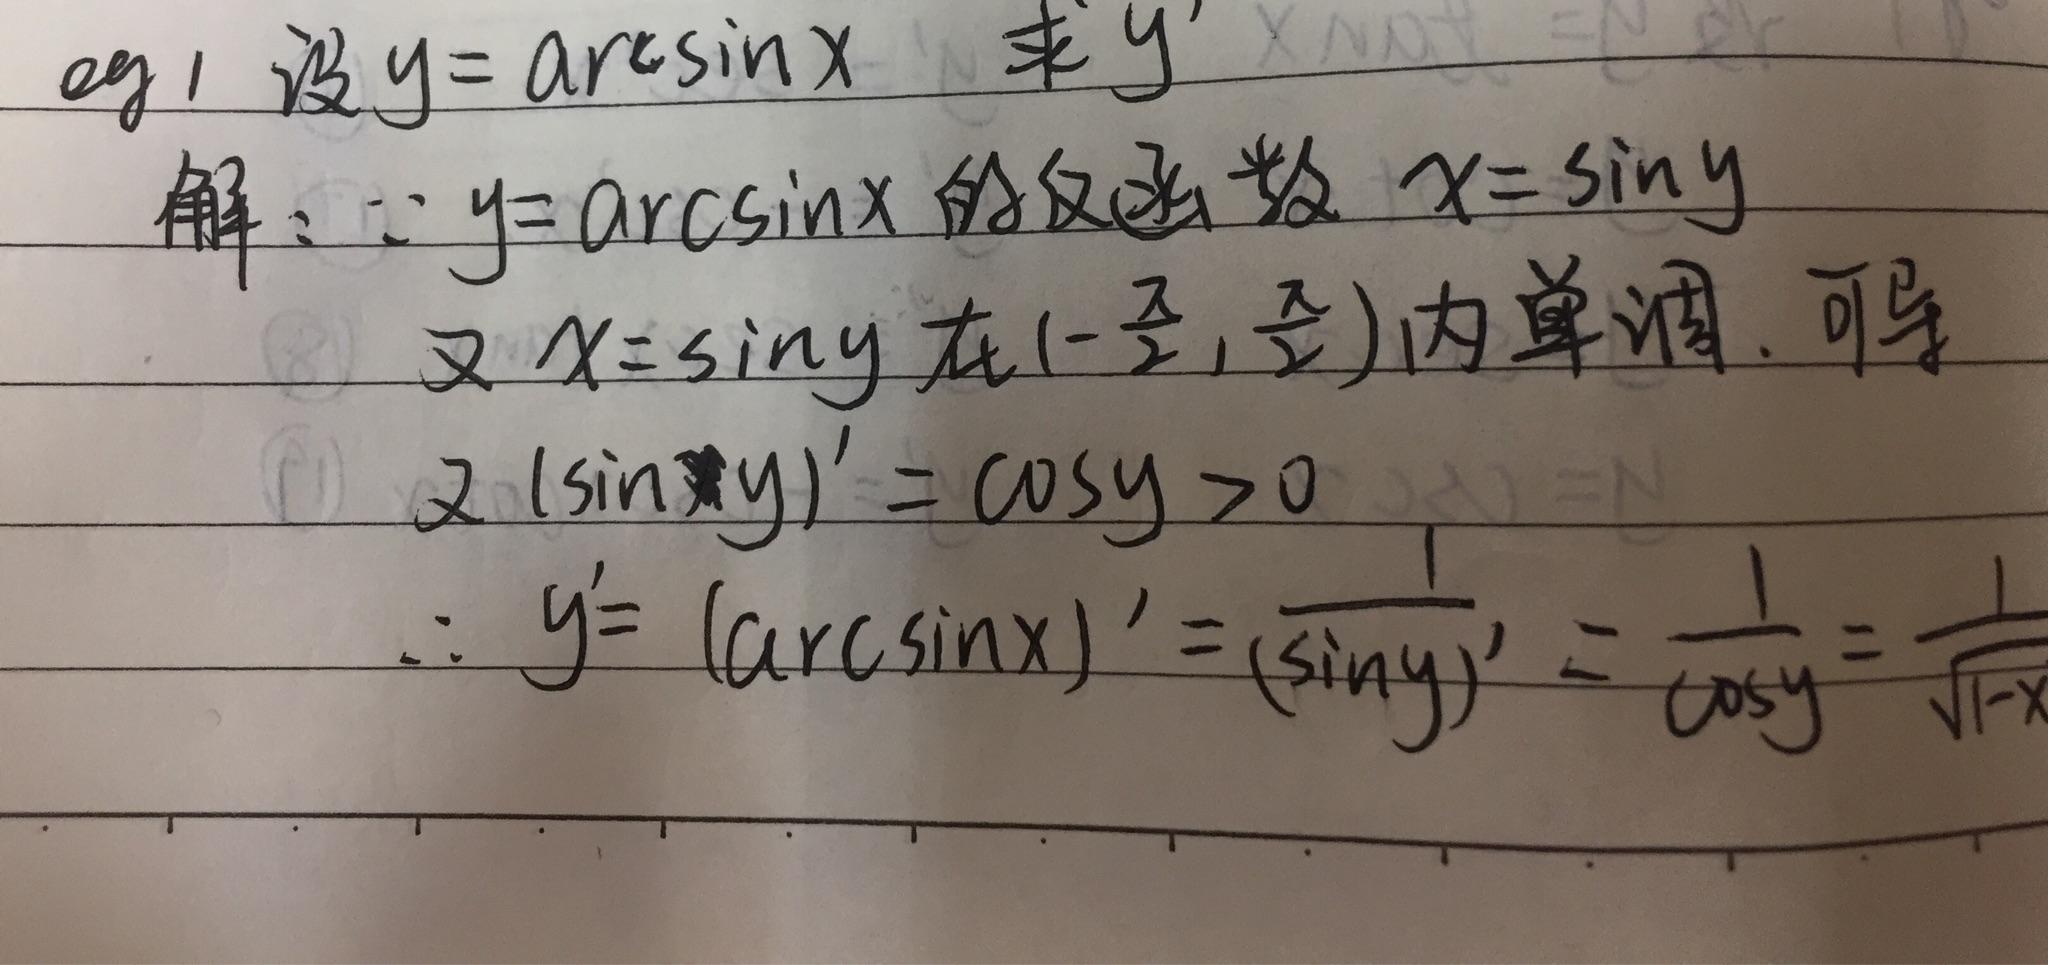 eg 1 设 y = arcsinx 求 y'
解: ∵ y = arcsinx 的反函数 x = siny
又 x = siny 在 (-π/2, π/2) 内单调. 可导
又 (sin y)' = cosy > 0
∴ y' = (arcsinx)' = 1/(siny)' = 1/cosy = 1/√1-x